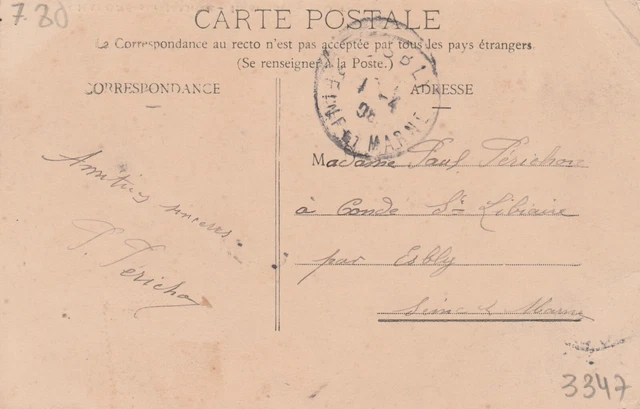 780
CARTE POSTALE
La Correspondance au recto n'est pas acceptée par tous les pays étrangers.
(Se renseigner à la Poste.)
CORRESPONDANCE
ADRESSE
ESBLY
08
SEINE ET MARNE
Amitiés sincères
P. Périchon
Madame Paul Périchon
à Conde Ste Libiaire
par Esbly
Seine & Marne
3347